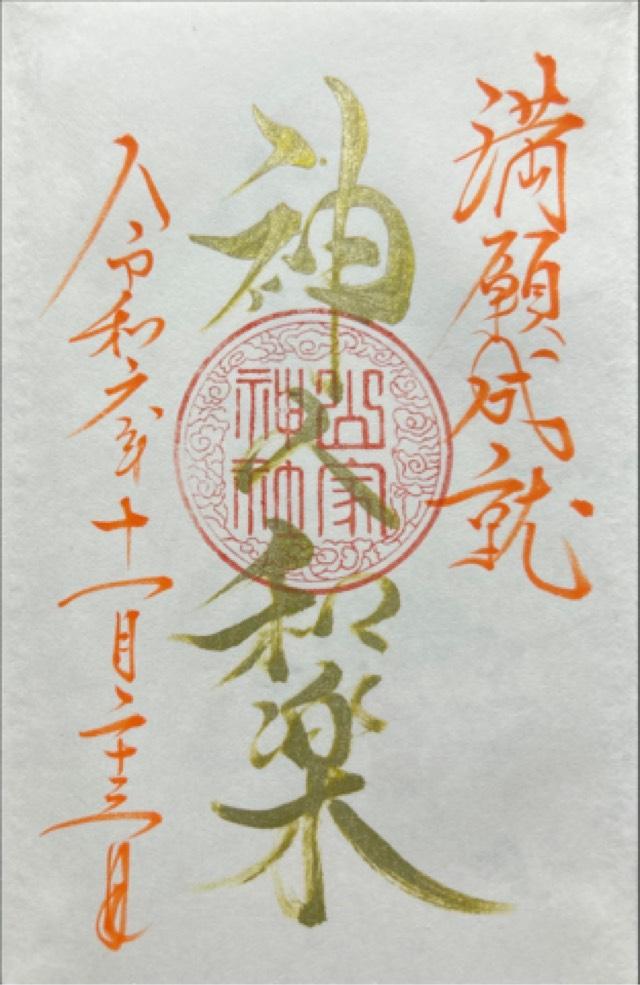 満願成就
神人和楽
公家神社
令和六年十一月二十三日